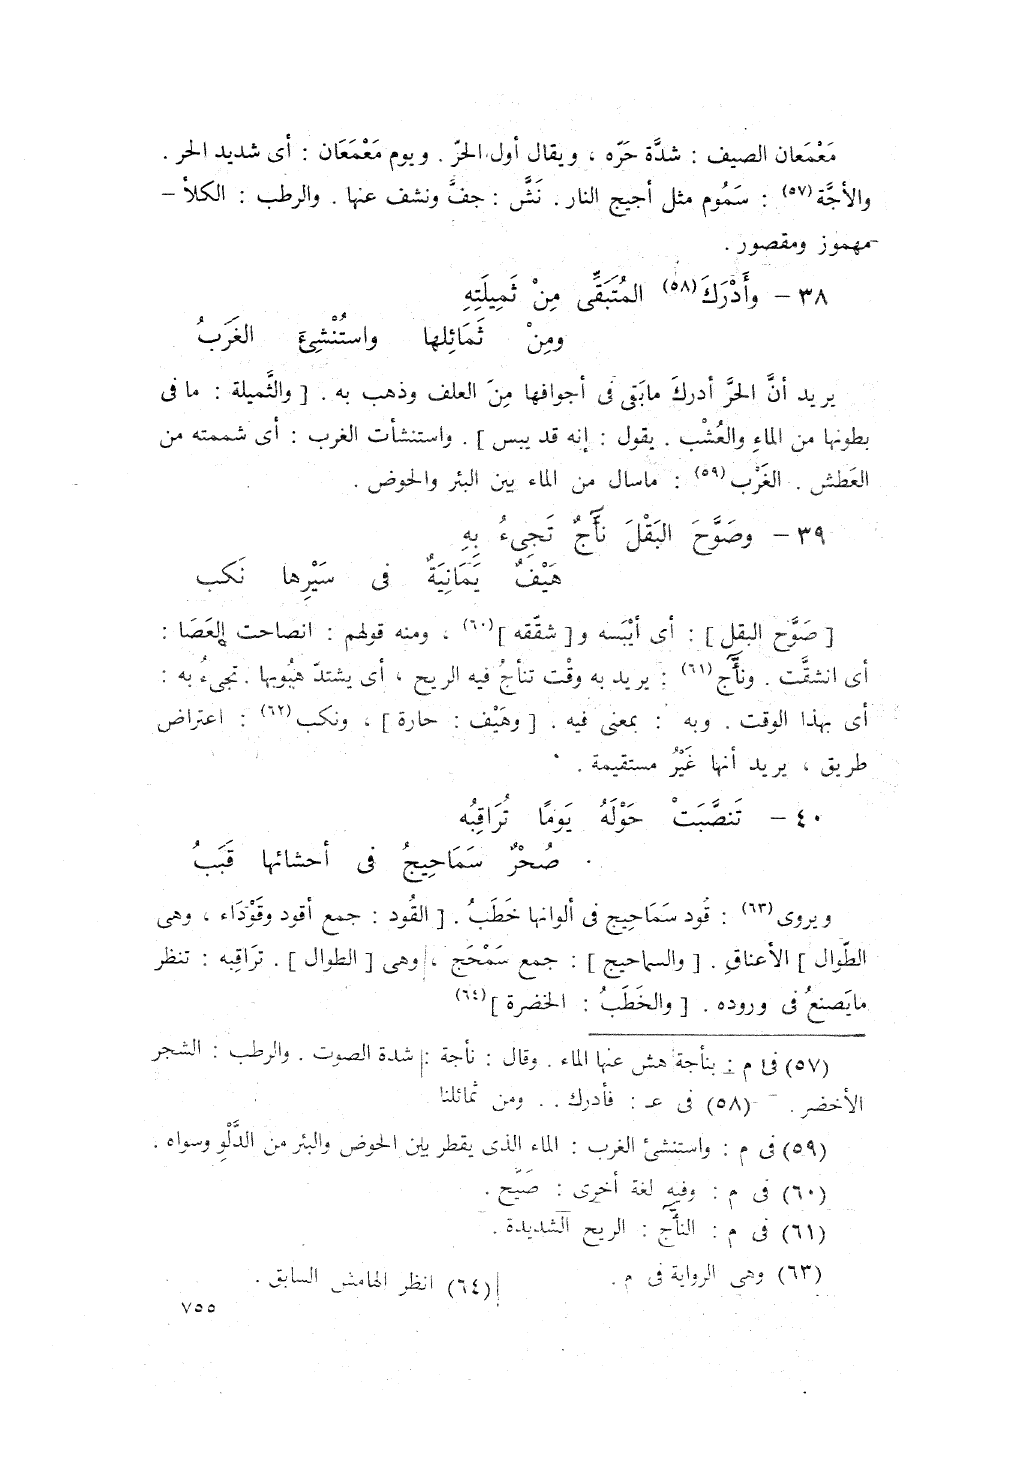 مَعْمَعان الصيف : شدَّة حَرّه ، ويقال أول الحرّ . ويوم مَعْمَعَان : أى شديد الحر .
والأجَّة(٥٧) : سَمُوم مثل أجيج النار . نَشَّ : جفَّ ونشف عنها . والرطب : الكلأ –
مهموز ومقصور .
٣٨ – وأَدْرَكَ(٥٨) المُتَبَقَّى مِنْ ثَمِيلَتِهِ
ومِنْ ثَمَائِلها واستُنْشِئَ الغَرَبُ
يريد أنَّ الحرَّ أدركَ مابَقى فى أجوافها مِنَ العلف وذهب به . [ والثَّميلة : ما فى
بطونها من الماءِ والعُشْب . يقول : إنه قد يبس ] . واستنشأت الغرب : أى شممته من
العَطش . الغَرْب(٥٩) : ماسال من الماء بين البئر والحوض .
٣٩ – وصَوَّحَ البَقْلَ نأَّجٌ تَجىءُ بِهِ
هَيْفٌ يَمَانِيَةٌ فى سَيْرِها نَكب
[ صَوَّح البقل ] : أى أيْبَسه و [ شقّقه ](٦٠) ، ومنه قولهم : انصاحت العَصَا :
أى انشقَّت . ونأَّج(٦١) : يريد به وقْت تنأجُ فيه الريح ، أى يشتدّ هبُوبها . تجىءُ به :
أى بهذا الوقت . وبه : بمعنى فيه . [ وهَيْف : حارة ] ، ونكب(٦٢) : اعتراض
طريق ، يريد أنها غَيْرُ مستقيمة .
٤٠ – تَنصَّبَتْ حَوْلَهُ يَومًا تُرَاقِبُه
صُحْرٌ سَمَاحِيجُ فى أحشائها قَبَبُ
ويروى(٦٣) : قُود سَمَاحِيج فى ألوانها خَطَبُ . [ القُود : جمع أقود وقَوْدَاء ، وهى
الطّوال ] الأعناقِ . [ والسماحيج ] : جمع سَمْحَج ، وهى [ الطوال ] . تَرَاقِبه : تنظر
مايَصنعُ فى وروده . [ والخَطَبُ : الخضرة ](٦٤)
(٥٧) فى م : بنأجة هش عنها الماء . وقال : نأجة : شدة الصوت . والرطب : الشجر
الأخضر . – (٥٨) فى عـ : فأدرك . . ومن ثمائلنا
(٥٩) فى م : واستنشئ الغرب : الماء الذى يقطر بين الحوض والبئر من الدَّلْوِ وسواه .
(٦٠) فى م : وفيه لغة أخرى : صَيَّح .
(٦١) فى م : النأَّج : الريح الشديدة .
(٦٣) وهى الرواية فى م . (٦٤) انظر الهامش السابق .
٧٥٥